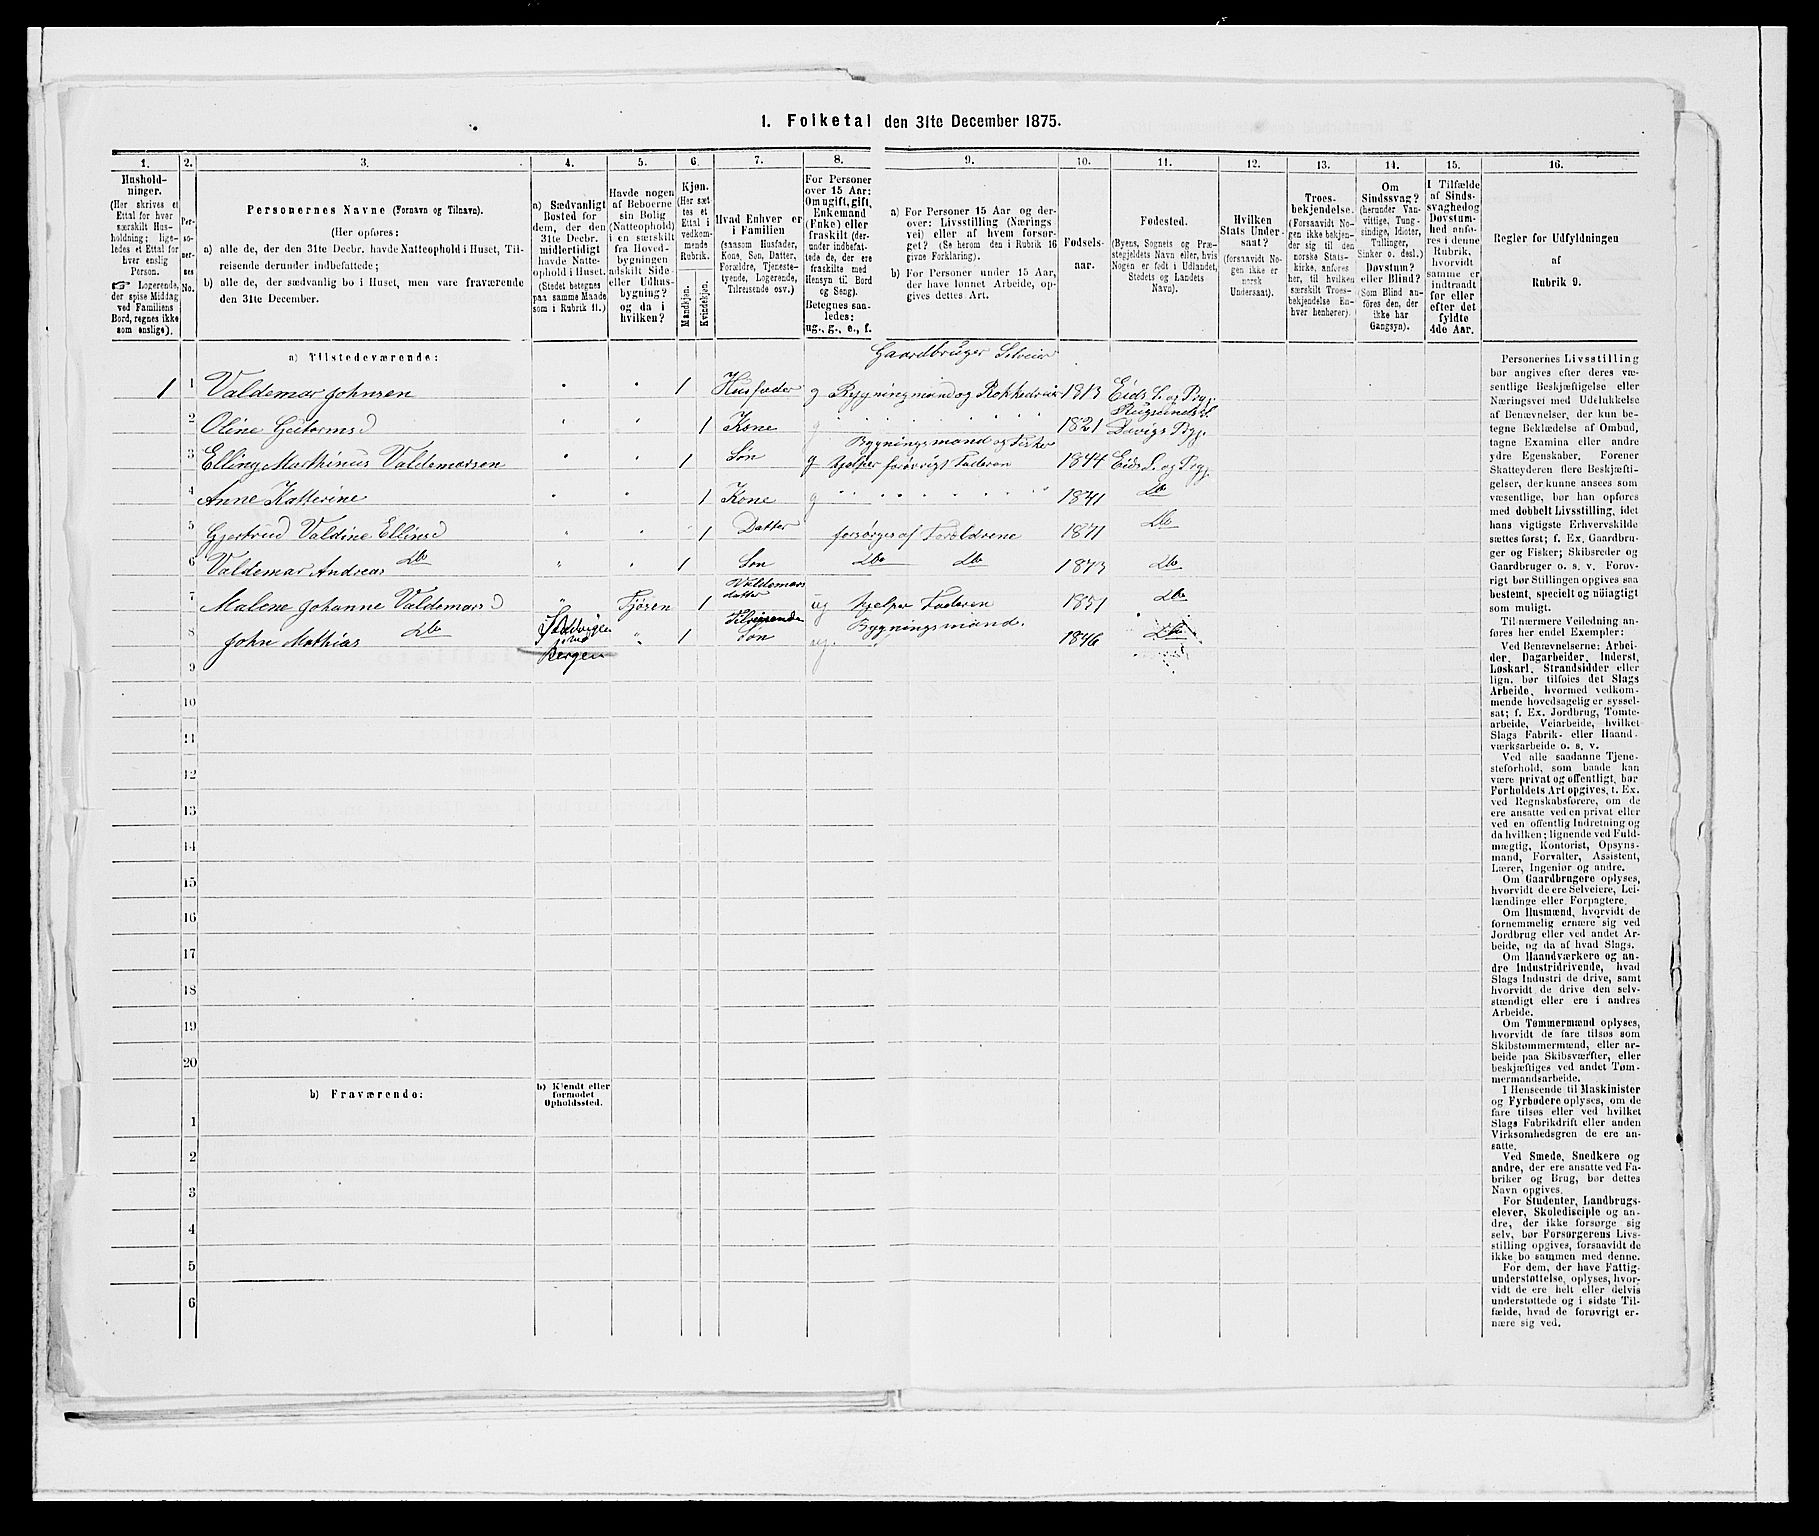 1. Folketal den 31te December 1875.
1. 2. 3. 4. 5. 6. 7. 8. 9. 10. 11. 12. 13. 14. 15. 16.
Hushold-
ninger.
(Her skrives et
Ettal for hver
særskilt Hus-
holdning; lige-
ledes et Ettal for
hver enslig
Person.
☞ Logerende,
der spise Middag
ved Familiens
Bord, regnes ikke
som enslige).
Per-
so-
ner-
nes
No.
Personernes Navne (Fornavn og Tilnavn).
(Her opføres:
a) alle de, der den 31te Decbr. havde Natteophold i Huset, Til-
reisende derunder indbefattede;
b) alle de, der sædvanlig bo i Huset, men vare fraværende
den 31te December.
a) Sædvanligt
Bosted for
dem, der den
31te Decbr.
midlertidigt
havde Natte-
ophold i Huset.
(Stedet betegnes
paa samme Maade
som i Rubrik 11.)
Havde nogen
af Beboerne
sin Bolig
(Natteophold)
i en særskilt
fra Hoved-
bygningen
adskilt Side-
eller Udhus-
bygning?
og da i
hvilken?
Kjøn.
(Her sæt-
tes et
Ettal i
vedkom-
mende
Rubrik.
Mandkjøn.
Kvindekjøn.
Hvad Enhver er
i Familien
(saasom Husfader,
Kone, Søn, Datter,
Forældre, Tjeneste-
tyende, Logerende,
Tilreisende osv.)
For Personer
over 15 Aar:
Om ugift, gift,
Enkemand
(Enke) eller
fraskilt (der-
under indbefat-
tede de, der ere
fraskilte med
Hensyn til Bord
og Seng).
Betegnes saa-
ledes:
ug., g., e., f.
a) For Personer 15 Aar og der-
over: Livsstilling (Nærings
vei) eller af hvem forsør-
get? (Se herom den i Rubrik 16
givne Forklaring).
b) For Personer under 15 Aar,
der have lønnet Arbeide, op-
gives dettes Art.
Fødsels-
aar.
Fødested.
(Byens, Sognets og Præ-
stegjeldets Navn eller, hvis
Nogen er født i Udlandet,
Stedets og Landets
Navn).
Hvilken
Stats Under-
saat?
(forsaavidt No-
gen ikke er
norsk
Undersaat).
Troes-
bekjendelse.
(Forsaavidt No-
gen ikke bekjen-
der sig til den
norske Stats-
kirke, anføres
her, til hvilken
særskilt Troes-
bekjendelse En-
hver henhører).
Om
Sindssvag?
(herunder Van-
vittige, Tung-
sindige, Idioter,
Tullinger,
Sinker o. desl.)
Døvstum?
eller Blind?
(Som Blind an-
føres den, der
ikke har
Gangsyn).
I Tilfælde
af Sinds-
svaghed og
Døvstum-
hed anfø-
res i denne
Rubrik,
hvorvidt
samme er
indtraadt
før eller
efter det
fyldte
4de Aar.
Regler for Udfyldningen
af
Rubrik 9.
a) Tilstedeværende:
Gaardbruger Selveier
1 1 Valdemar Johnsen " " 1 Husfader g Bygningmand og Rokkedreier 1813 Eids S. og Prgj.
2 Oline Guttormsd " " 1 Kone g " " " 1821 Davigs Prgj.
Bygningsmand og Fisker
3 Elling Marthinus Valdemarsen " " 1 Søn g hjelper forøvrigt Faderen 1844 Eids S. og Prgj.
4 Anne Katterine " " 1 Kone g " " " 1841 Do
5 Gjertrud Valdine Ellinsd " " 1 Datter forsørges af Forældrene 1871 Do
6 Valdemar Andreas Do " " 1 Søn Do Do 1873 Do
Valdemars
datter
7 Malene Johanne Valdemarsd " Fjøsen 1 ug hjelper Faderen 1851 Do
Tilreisende
8 John Mathias Do ved " 1 Søn ug. Bygningsmand. 1846 Do
Bergen
9
10
11
12
13
14
15
16
17
18
19
20
b) Fraværende:
b) Kjendt eller
formodet
Opholdssted.
1
2
3
4
5
6
Personernes Livsstilling
bør angives efter deres væ-
sentlige Beskjæftigelse eller
Næringsvei med Udelukkelse
af Benævnelser, der kun be-
tegne Beklædelse af Ombud,
tagne Examina eller andre
ydre Egenskaber. Forener
Skatteyderen flere Beskjæfti-
gelser, der kunne ansees som
væsentlige, bør han opføres
med dobbelt Livsstilling, idet
hans vigtigste Erhvervskilde
sættes først; f. Ex. Gaardbru-
ger og Fisker; Skibsreder og
Gaardbruger o. s. v. Forøv-
rigt bør Stillingen opgives saa
bestemt, specielt og nøiagtigt
som muligt.
Til nærmere Veiledning an-
føres her endel Exempler:
Ved Benævnelserne: Arbei-
der, Dagarbeider, Inderst,
Løskarl, Strandsidder eller
lign. bør tilføies det Slags
Arbeide, hvormed vedkom-
mende hovedsagelig er syssel-
sat; f. Ex. Jordbrug, Tomte-
arbeide, Veiarbeide, hvilket
Slags Fabrik- eller Haand-
værksarbeide o. s. v.
Ved alle saadanne Tjene-
steforhold, som baade kan
være privat og offentligt, bør
Forholdets Art opgives, t. Ex.
ved Regnskabsførere, om de
ere ansatte ved en privat eller
ved en offentlig Indretning og
da hvilken; lignende ved Fuld-
mægtig, Kontorist, Opsyns-
mand, Forvalter, Assistent,
Lærer, Ingeniør og andre.
Om Gaardbrugere oplyses,
hvorvidt de ere Selveiere, Lei-
lændinge eller Forpagtere.
Om Husmænd, hvorvidt de
fornemmelig ernære sig ved
Jordbrug eller ved andet Ar-
beide, og da af hvad Slags.
Om Haandværkere og an-
dre Industridrivende, hvad
Slags Industri de drive, samt
hvorvidt de drive den selv-
stændigt eller ere i andres
Arbeide.
Om Tømmermænd oplyses,
hvorvidt de fare tilsøs som
Skibstømmermænd, eller ar-
beide paa Skibsværfter, eller
beskjæftiges ved andet Tøm-
mermandsarbeide.
I Henseende til Maskinister
og Fyrbødere oplyses, om de
fare tilsøs eller ved hvilket
Slags Fabrikdrift eller anden
Virksomhedsgren de ere an-
satte.
Ved Smede, Snedkere og
andre, der ere ansatte ved Fa-
briker og Brug, bør dettes
Navn opgives.
For Studenter, Landbrugs-
elever, Skoledisciple og an-
dre, der ikke forsørge sig
selv, bør Forsørgerens Livs-
stilling opgives, forsaavidt de
ikke bo sammen med denne.
For dem, der have Fattig-
understøttelse, oplyses, hvor-
vidt de ere helt eller delvis
understøttede og i sidste Til-
fælde, hvad de forøvrigt er-
nære sig ved.